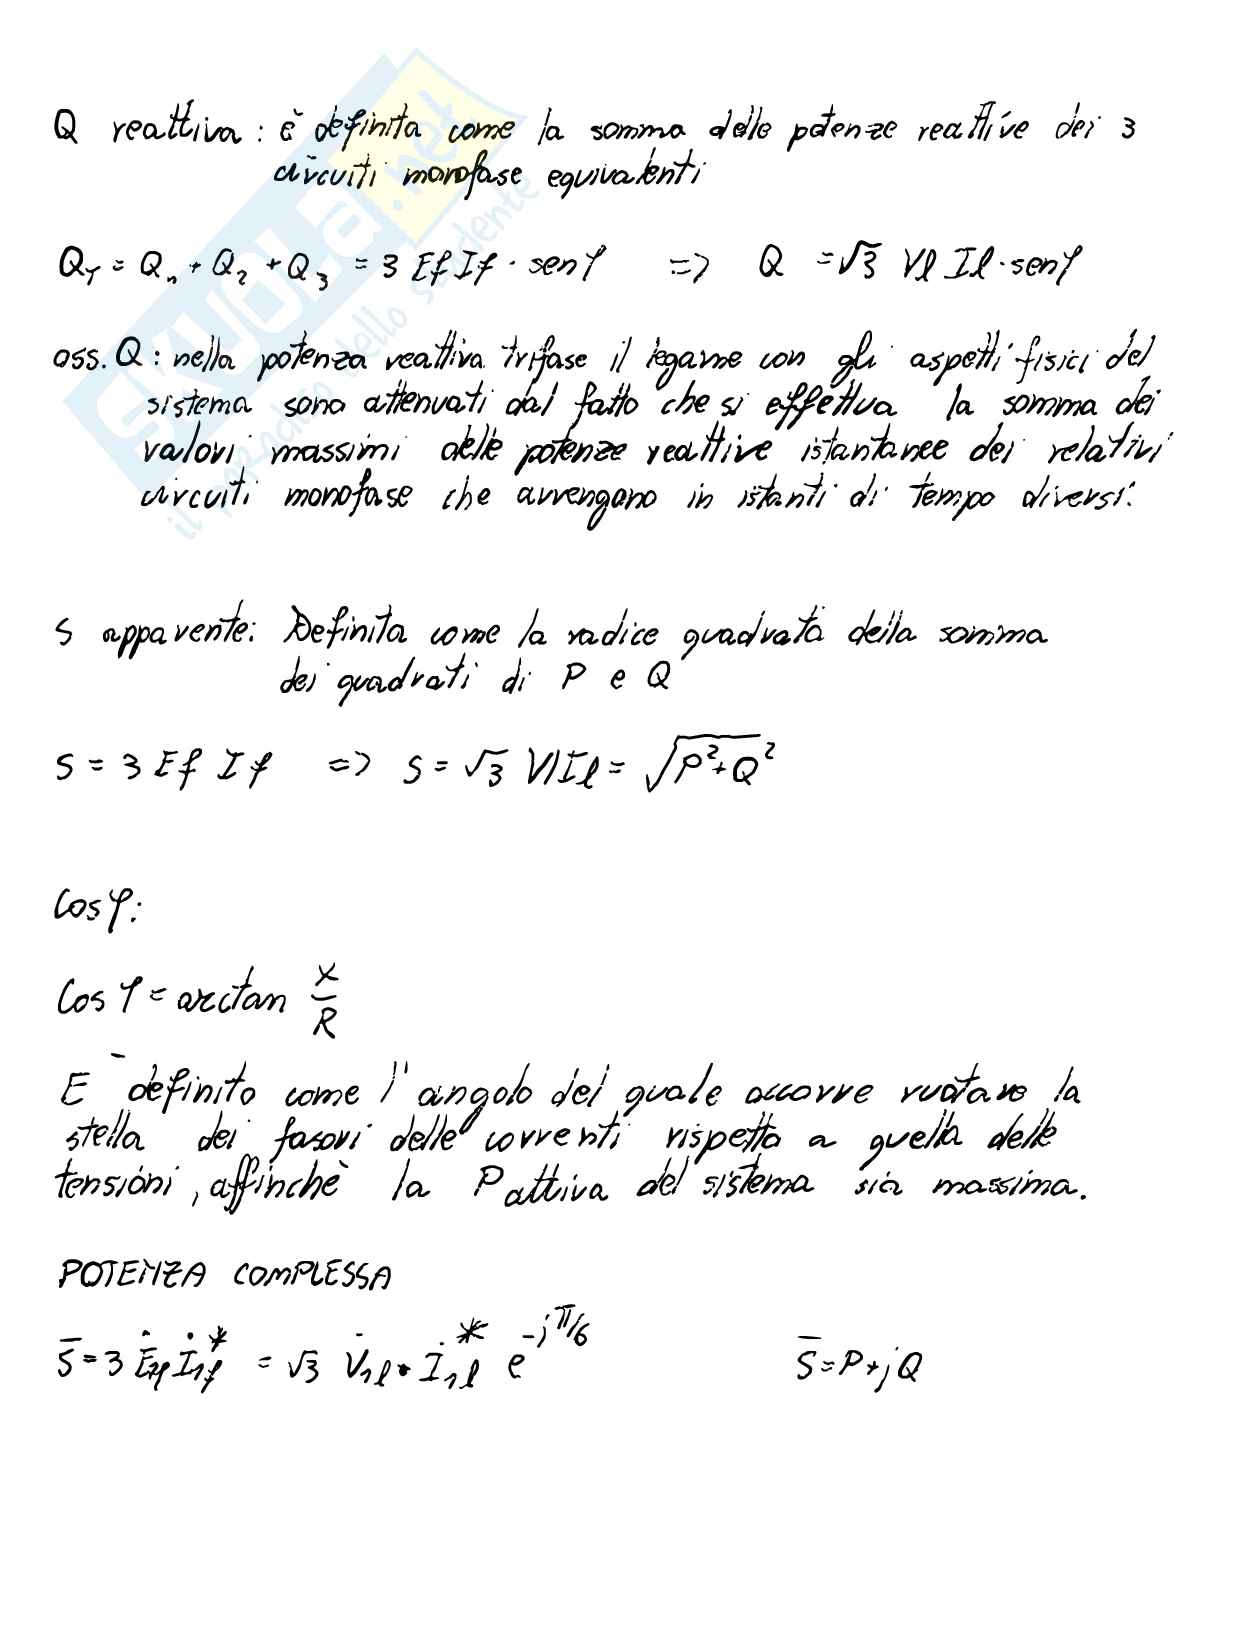 Q reattiva : è definita come la somma delle potenze reattive dei 3
circuiti monofase equivalenti
QT = Q1 + Q2 + Q3 = 3 Ef If · senφ => Q = √3 Vl Il · senφ
oss. Q : nella potenza reattiva trifase il legame con gli aspetti fisici del
sistema sono attenuati dal fatto che si effettua la somma dei
valori massimi delle potenze reattive istantanee dei relativi
circuiti monofase che avvengono in istanti di tempo diversi.
S apparente: Definita come la radice quadrata della somma
dei quadrati di P e Q
S = 3 Ef If => S = √3 Vl Il = √P²+Q²
Cosφ:
Cosφ = arctan X/R
E definito come l'angolo del quale occorre ruotare la
stella dei fasori delle correnti rispetto a quella delle
tensioni, affinchè la P attiva del sistema sia massima.
POTENZA COMPLESSA
S̅ = 3 Ė1f İ1f* = √3 V̇1l • İ1l* e^-jπ/6 S̅ = P + jQ
SKUOLA.net
il paradiso dello studente